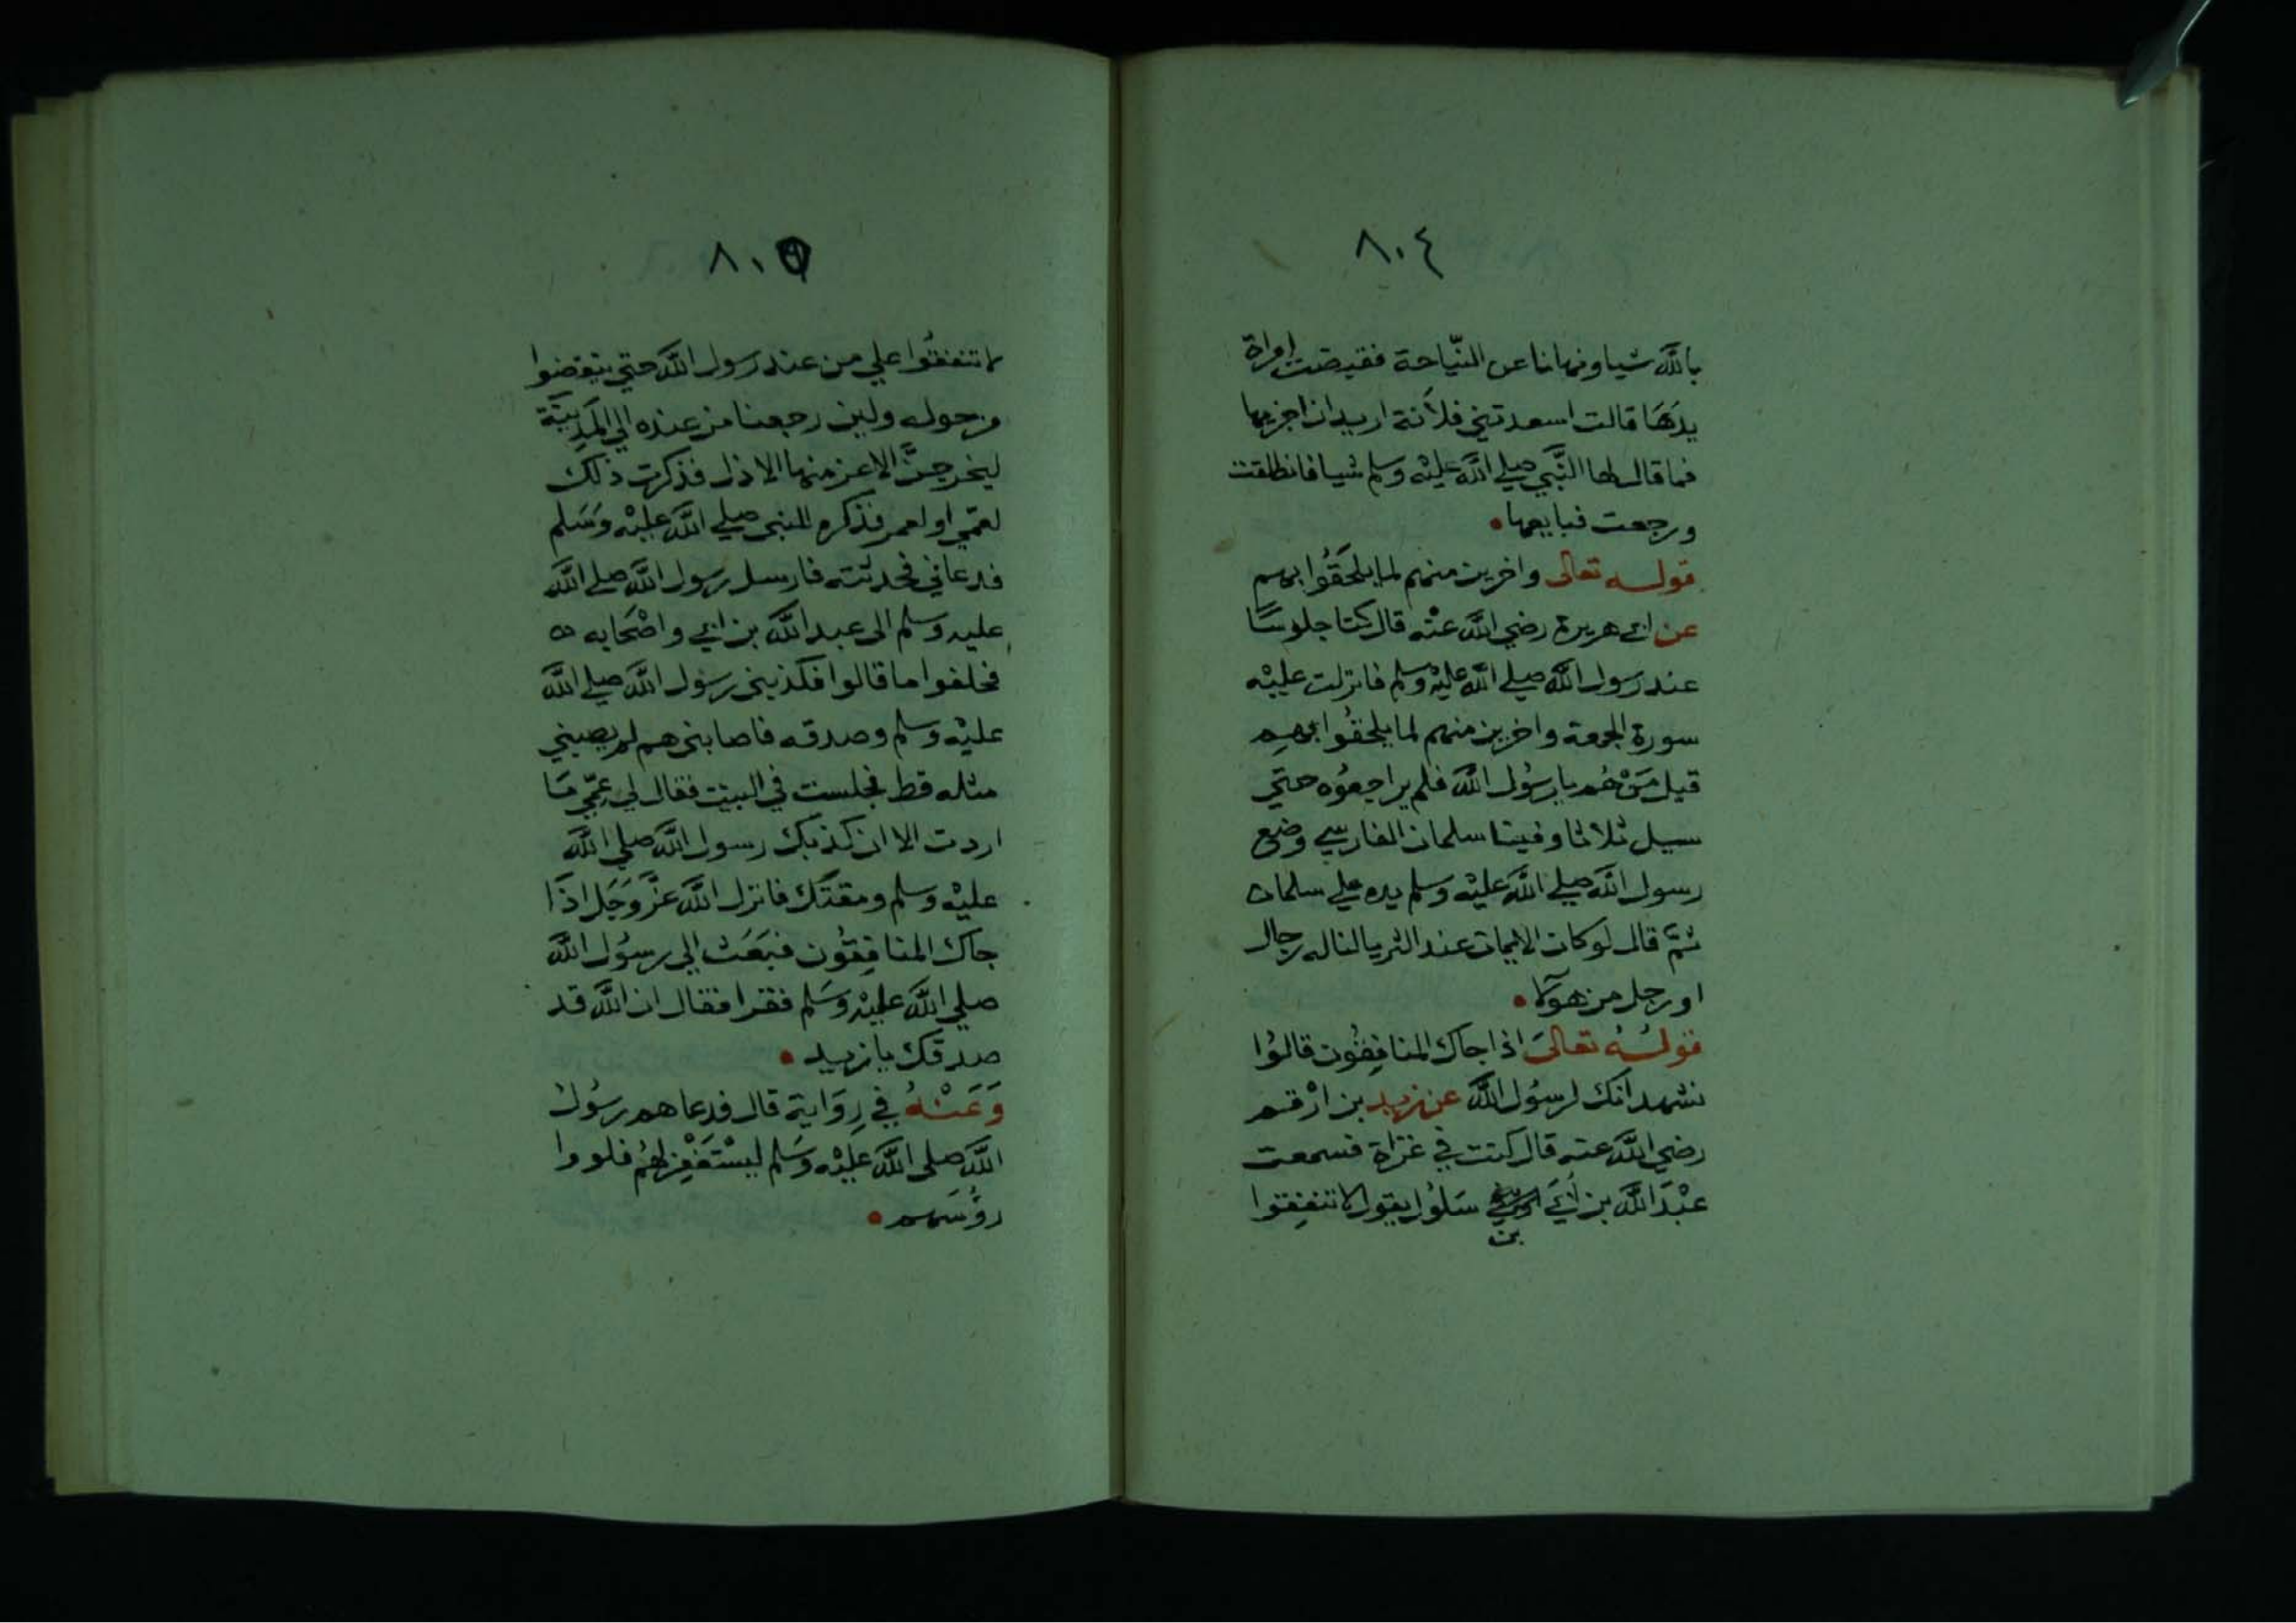 ٨٠٤
بالله شيا ونهانا عن النّياحة فقبضت امراة
يدهَا قالت اسعدتني فلانة اريد ان اجزيها
فما قال لها النَّبي صلي الله عليْه وسلم شيا فانطلقت
ورجعت فبايعها
قولـه تعالى واخرين منهم لما يلحَقُوا بهم
عن ابي هريرة رضي الله عنْه قال كنا جلوسًا
عند رسول الله صلي الله عليْه وسلم فانزلت عليْه
سورة الجمعة واخرين منهم لما يلحقُوا بهم
قيل مَنْ هُم يا رسُول الله فلم يراجعوُه حتي
سيل ثلاثا وفينا سلمان الفارسي وضع
رسول الله صلي الله عليْه وسلم يده علي سلمان
ثمّ قال لو كان الايمان عند الثريا لناله رجال
او رجل من هولآء
قولـُهُ تعالىَ اذا جاك المنافِقُون قالوُا
نشهد انك لرسُول الله عن زيد بن ارْقم
رضي الله عنه قال كنت في غزاة فسمعت
عبْدَ الله بن أبَي سَلوُل يقول لا تنفِقوا
بن
٨٠٥
لا تنفقُوا علي من عند رسول الله حتي ينفضوا
من حوله ولين رجعنا من عنده الي المَدِينَة
ليخرجنَّ الاعز منها الاذل فذكرت ذلك
لعمّي او لعمر فذكره للنبي صلي الله عليْه وَسَلم
فدعاني فحدثته فارسل رسول الله صلي الله
عليه وسلم الى عبد الله بن ابي واصْحَابه
فحلفوا ما قالوا فكذبني رسُول الله صلي الله
عليْه وسلم وصدقه فاصابني هم لم يصبني
مثله قط فجلست في البيت فقال لي عمّي مَا
اردت الا ان كذبك رسول الله صلي الله
عليْه وسلم ومقتَك فانزل الله عزَّ وَجَل اذَا
جاك المنافِقُون فبَعَث الي رسُول الله
صلي الله عليْه وسَلم فقرا فقال ان الله قد
صدقك يا زيد
وَعَنْهُ في رِوَاية قال فدعاهم رسُول
الله صلى الله عليْه وسَلم ليسْتَغفِر لهُم فلووا
روُسَهم